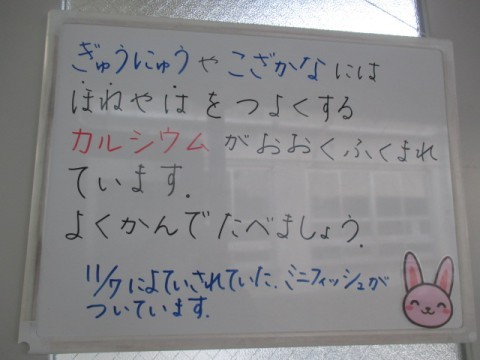 ぎゅうにゅうやこざかなには
ほねやはをつよくする
カルシウムがおおくふくまれ
ています.
よくかんでたべましょう.
11/7によていされていた.ミニフィッシュが
ついています.